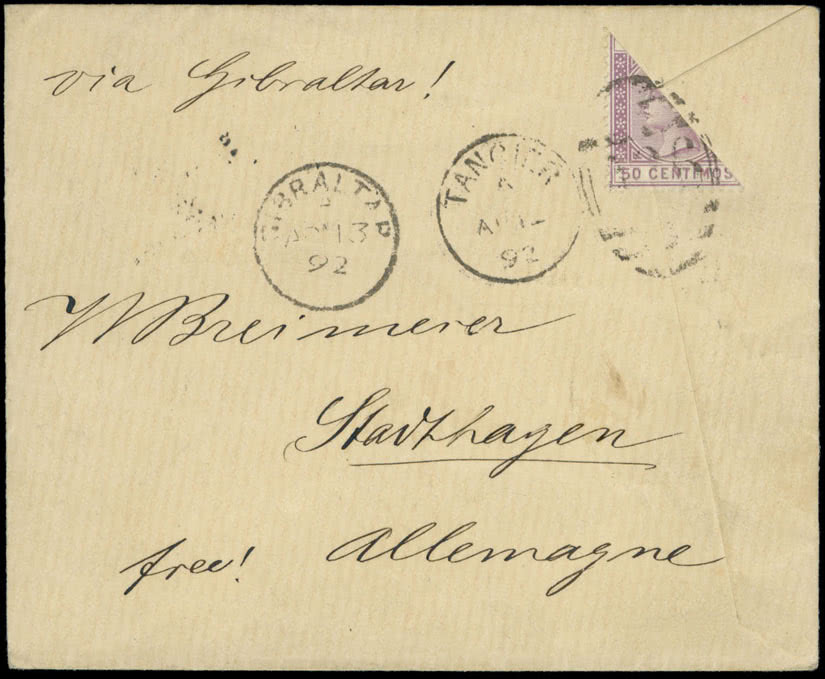 via Gibraltar!
50 CENTIMOS
TANGIER
A
AP 12
92
GIBRALTAR
AP 13
92
W Breimeier
Stadthagen
free! Allemagne